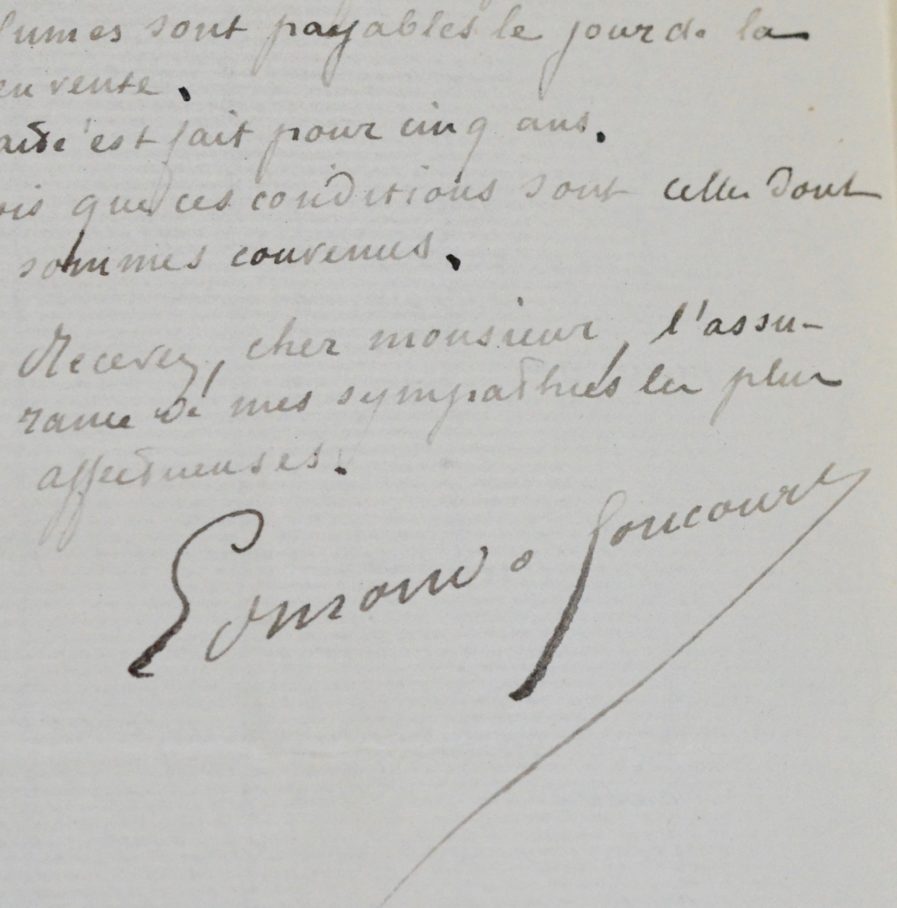 lumes sont payables le jour de la
en vente.
aité est fait pour cinq ans.
ois que ces conditions sont celles dont
sommes convenues.
Recevez, cher monsieur, l'assu-
rance de mes sympathies les plus
affectueuses.
Edmond de Goncourt